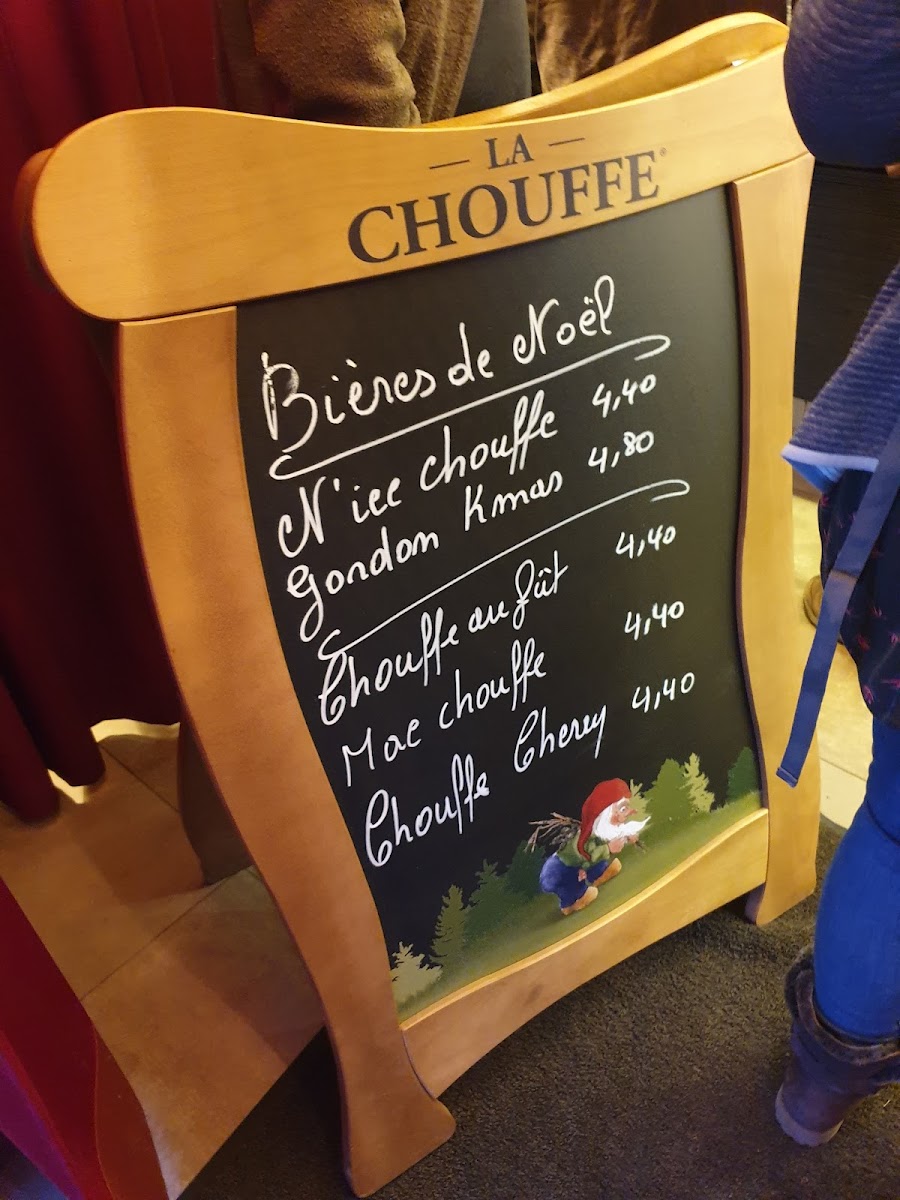 — LA —
CHOUFFE®
Bières de Noël
N'ice chouffe 4,40
Gordon Xmas 4,80
Chouffe au fût 4,40
Mac chouffe 4,40
Chouffe Cherry 4,40